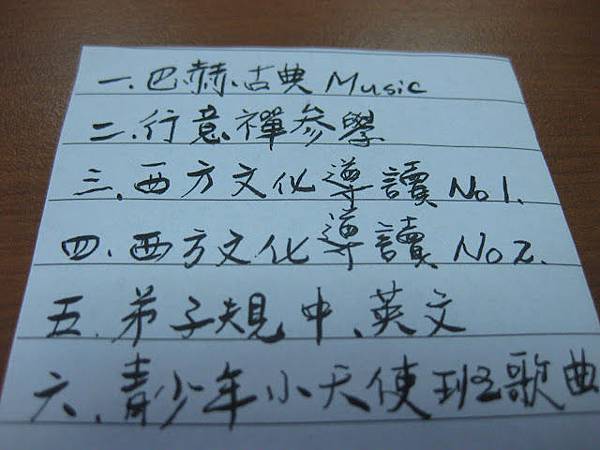 一.巴赫古典Music
二.行意禪參學
三、西方文化導讀No1.
四、西方文化導讀No2.
五.弟子規中、英文
六.青少年小天使班歌曲